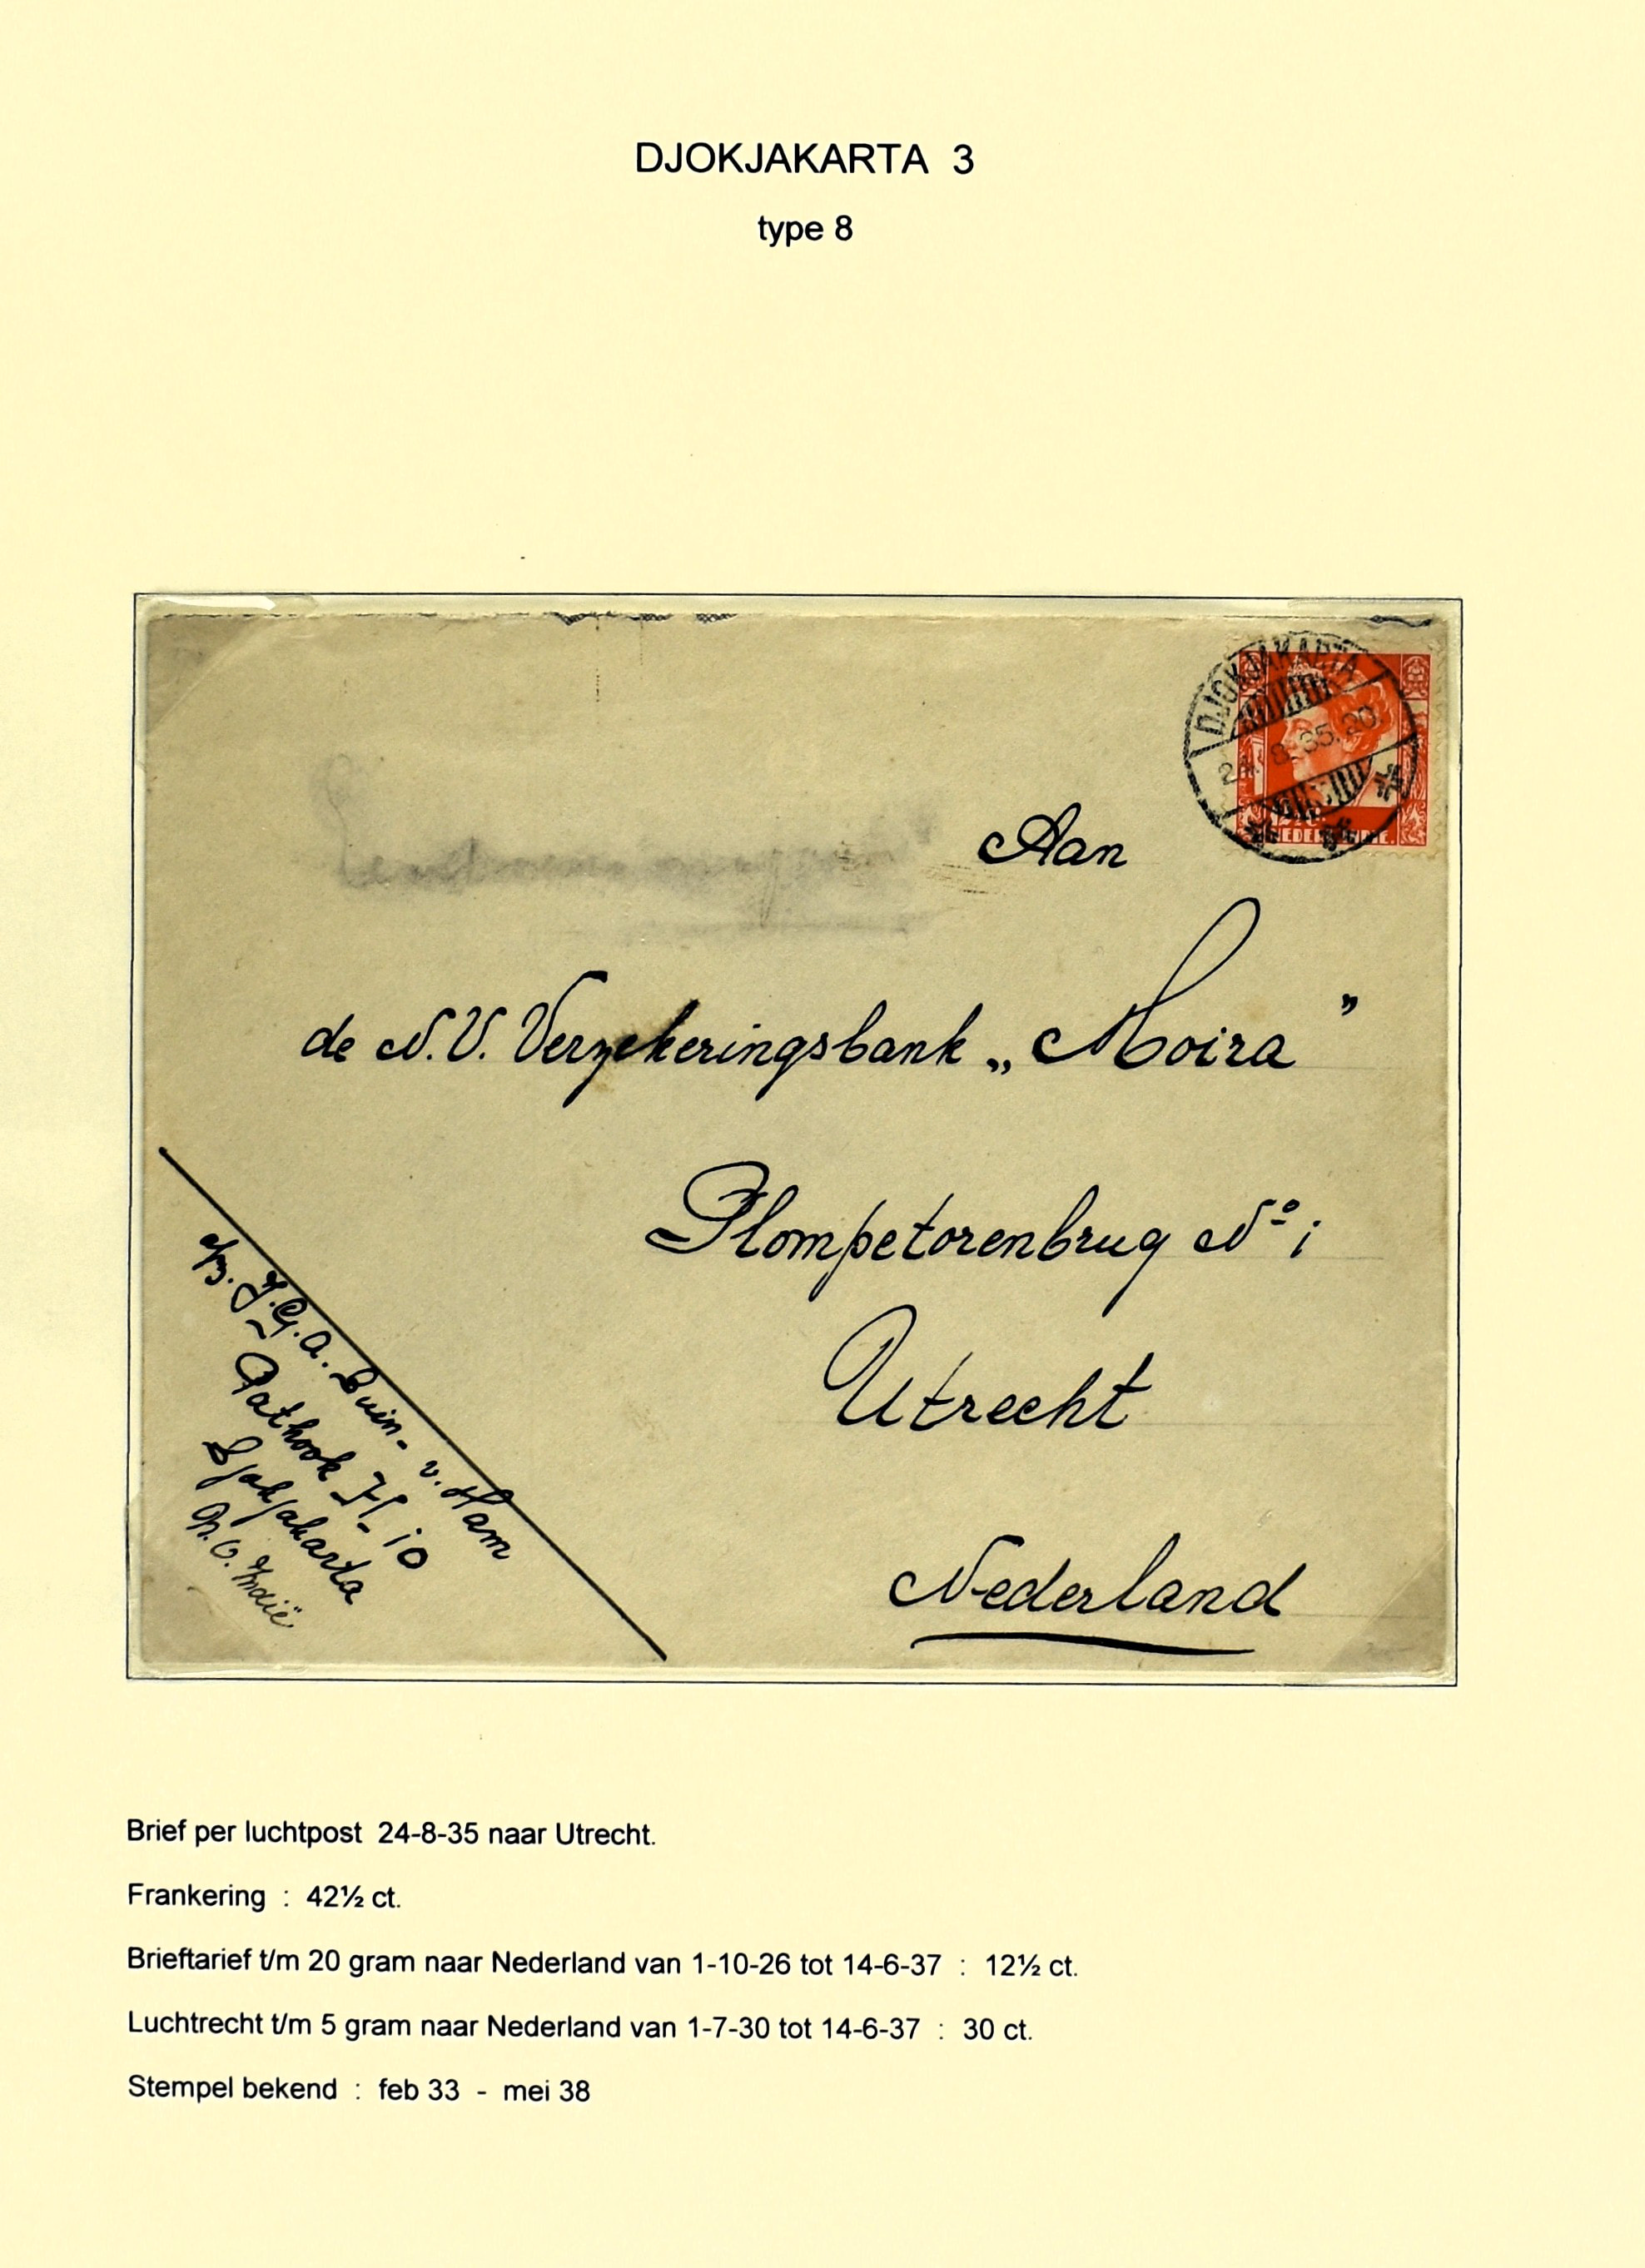 DJOKJAKARTA 3
type 8
DJOKJAKARTA
24. 8. 35. 20
NEDERL. INDIE.
Aan
de N.V. Verzekeringsbank „Moira”
Plompetorenbrug Nº 1
Utrecht
Nederland
J.G.A. Buin- v. Ham
Pathook H-10
Djokjakarta
N.O. Indië
Brief per luchtpost 24-8-35 naar Utrecht.
Frankering : 42½ ct.
Brieftarief t/m 20 gram naar Nederland van 1-10-26 tot 14-6-37 : 12½ ct.
Luchtrecht t/m 5 gram naar Nederland van 1-7-30 tot 14-6-37 : 30 ct.
Stempel bekend : feb 33 - mei 38